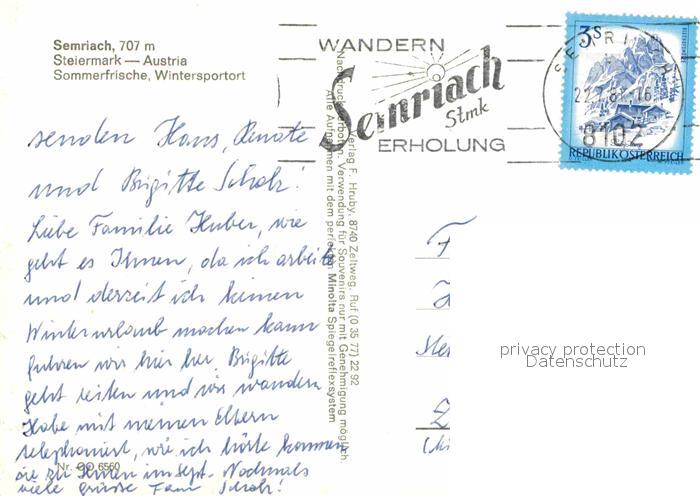 Semriach, 707 m
Steiermark — Austria
Sommerfrische, Wintersportort
WANDERN
Semriach
Stmk
ERHOLUNG
3 S
SEMRIACH
8102
REPUBLIK ÖSTERREICH
senden Hans, Renate
und Brigitte Scholz!
Liebe Familie Huber, wie
geht es Ihnen, da ich arbeite
und derzeit ich keinen
Winterurlaub machen kann
fuhren wir hier her. Brigitte
geht reiten und wir wandern
Habe mit meinen Eltern
telephoniert, wie ich hörte kommen
sie zu Ihnen im Sept. Nochmals
viele Grüsse Fam Scholz!
Nr. GO 6560
Verlag F. Hruby, 8740 Zeltweg, Ruf (0 35 77) 22 92
Nachdruck verboten. Verwendung für Souvenirs nur mit Genehmigung möglich
Alle Aufnahmen mit dem perfekten Minolta Spiegelreflexsystem
F
privacy protection
Datenschutz